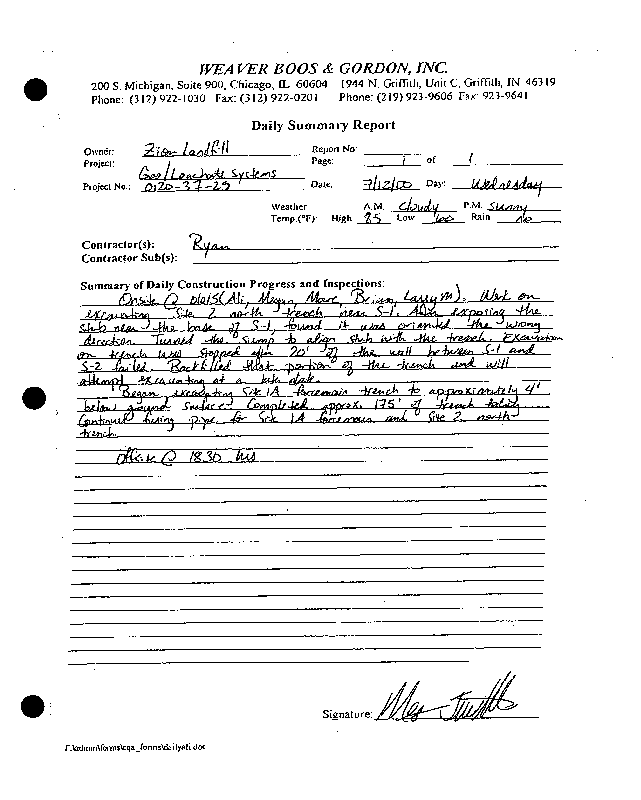 WEAVER BOOS & GORDON, INC.
200 S. Michigan, Suite 900, Chicago, IL 60604 1944 N. Griffith, Unit C, Griffith, IN 46319
Phone: (312) 922-1030 Fax: (312) 922-0201 Phone: (219) 923-9606 Fax: 923-9641
Daily Summary Report
Owner: Zion Landfill Report No:
Project: Gas/Leachate Systems Page: 1 of 1
Project No.: 0120-37-25 Date: 7/12/00 Day: Wednesday
Weather A.M. Cloudy P.M. Sunny
Temp.(°F): High 85 Low 60 Rain no
Contractor(s): Ryan
Contractor Sub(s):
Summary of Daily Construction Progress and Inspections:
Onsite @ 0615 (Ali, Megan, Marc, Brian, Larry M). Work on
excavating Site 2 north trench near S-1. After exposing the
stub near the base of S-1, found it was oriented the wrong
direction. Turned the sump to align stub with the trench. Excavation
on trench was stopped after 20' of the wall between S-1 and
S-2 failed. Backfilled that portion of the trench and will
attempt excavating at a later date.
Began excavating Site 1A forcemain trench to approximately 4'
below ground surface. Completed approx. 175' of trench today.
Continued fusing pipe for Site 1A forcemain and Site 2 north
trench.
offsite @ 1830 hrs
Signature:
F:\admin\forms\cqa_forms\dailyafi.doc